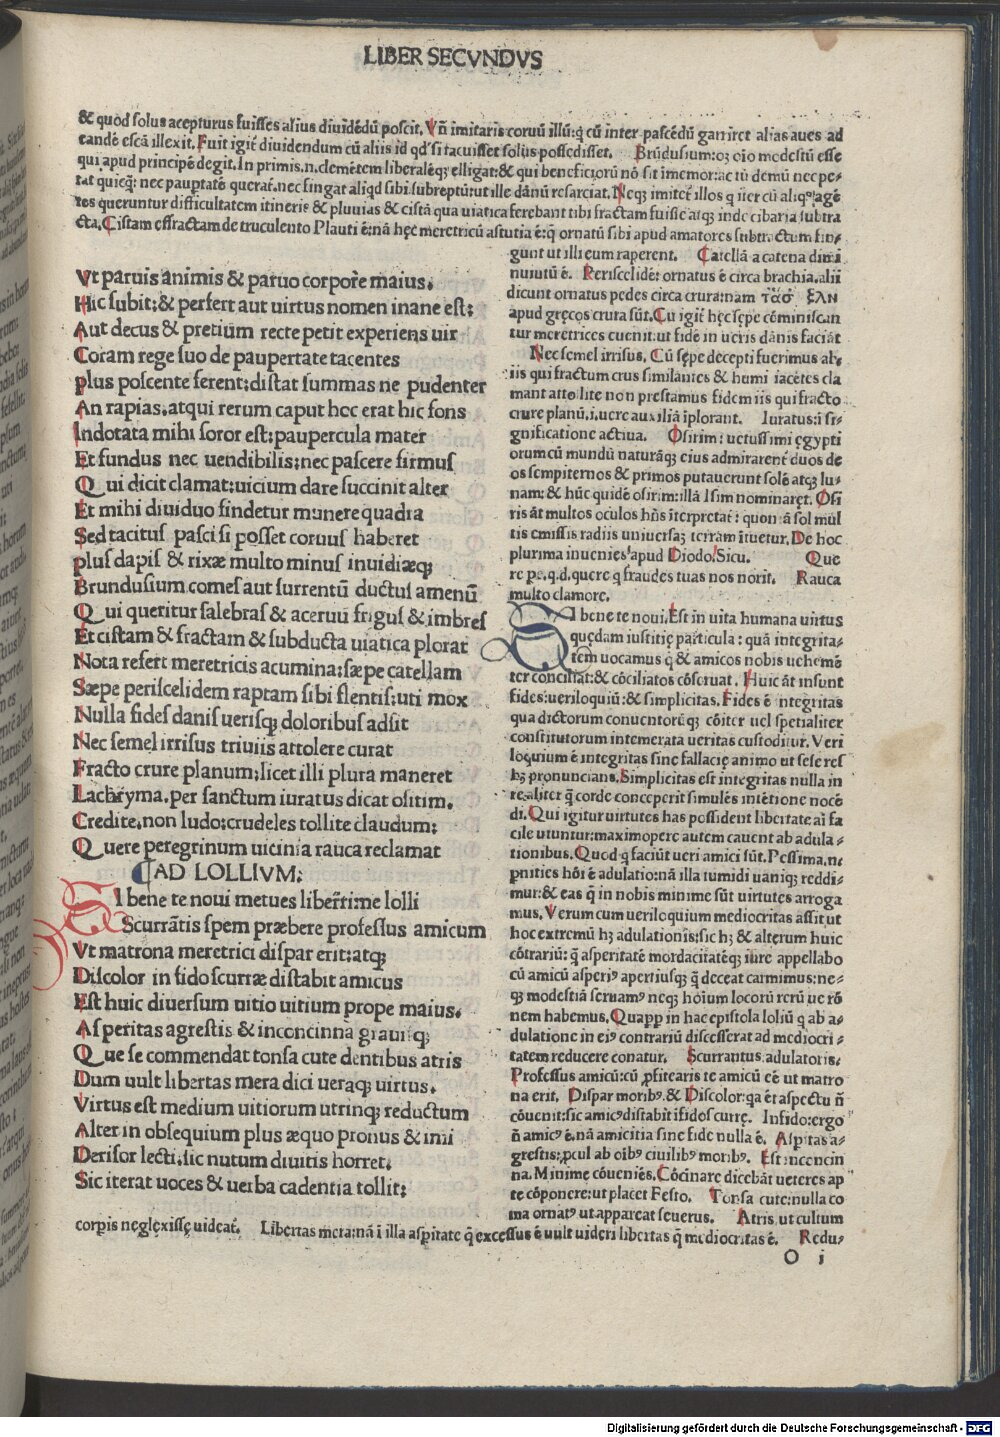 LIBER SECVNDVS
& quod solus accepturus fuisses alius diuidēdū poscit. Vñ imitaris coruū illū: q̇ cū inter pascēdū garriret alias aues ad
eandē escā illexit. Fuit igit̃ diuidendum cū aliis id qd̕ si tacuisset solus possedisset. Brūdusium:
qui apud principē degit. In primis.n.clemētem liberalēq; elligat: & qui beneficiorū nō sit īmemor: ac tū demū nec pe-
tat quicq̄: nec paup̄tatē querat. nec fingat aliqd sibi subreptū: ut ille dānū resarciat. Neq; imitet̃ illos q iter cū
tes queruntur difficultatem itineris & pluuias & cistā qua uiatica ferebant tibi fractam fuisse atq; inde cibaria subtra
cta. Cistam effractam de truculento Plauti ē: nā hęc meretricū astutia ē: q̇ ornatū sibi apud amatores subtractum fin-
Vt paruis animis & paruo corpore maius.
Hic subit: & perfert aut uirtus nomen inane est:
Aut decus & pretium recte petit experiens uir
Coram rege suo de paupertate tacentes
plus poscente ferent: distat summas ne pudenter
An rapias. atqui rerum caput hoc erat hic fons
Indotata mihi soror est: paupercula mater
Et fundus nec uendibilis: nec pascere firmus
Qui dicit clamat: uicium dare succinit alter
Et mihi diuiduo findetur munere quadra
Sed tacitus pasci si posset coruus haberet
plus dapis & rixæ multo minus inuidiæq;
Brundusium comes aut surrentū ductus amenū
Qui queritur salebras & aceruū frigus & imbres
Et cistam & fractam & subducta uiatica plorat
Nota refert meretricis acumina: sæpe catellam
Sæpe periscelidem raptam sibi flentis: uti mox
Nulla fides danis uerisq; doloribus adsit
Nec semel irrisus triuiis attolere curat
Fracto crure planum: licet illi plura maneret
Lachryma. per sanctum iuratus dicat ositim.
Credite. non ludo: crudeles tollite claudum:
Quere peregrinum uicinia rauca reclamat
AD LOLLIVM:
SI bene te noui metues liber̃time lolli
Scurrātis spem præbere professus amicum
Vt matrona meretrici dispar erit: atq;
Discolor infido scurræ distabit amicus
Est huic diuersum uitio uitium prope maius.
Asperitas agrestis & inconcinna grauisq;
Que se commendat tonsa cute dentibus atris
Dum uult libertas mera dici ueraq; uirtus.
Virtus est medium uitiorum utrinq; reductum
Alter in obsequium plus æquo pronus & imi
Derisor lecti. sic nutum diuitis horret.
Sic iterat uoces & uerba cadentia tollit:
gunt ut illi eum raperent. Catellā a catena dimi
nuiutū ē. Periscelidē: ornatus ē circa brachia. alii
dicunt ornatus pedes circa crura: nam
apud gręcos crura sūt. Cu igit̃ hęc sępe cōminiscan
tur meretrices euenit: ut fidē in ueris dānis faciāt
Nec semel irrisus. Cū sępe decepti fuerimus ab
iis qui fractum crus similantes & humi iacētes cla
mant attolite non prestamus fidem iis qui fracto
crure planū. i. uere auxiliā īplorant. Iuratus: ī si-
gnificatione actiua. Osirim: uetustimi ęgypti
orum cū mundū naturāq; eius admirarent̃ duos de
os sempiternos & primos putauerunt solē atq; lu-
nam: & hūc quidē osirim: illā Isim nominaręt. Osi
ris āt multos oculos hñs īterpretat̃: quoniā sol mul
tis emissis radiis uniuersaq; terram ītuetur. De hoc
plurima inuenies apud Diodo. Sicu. Que
re pe. q.d. quere q fraudes tuas non norit. Rauca
multo clamore.
SI bene te noui. Est in uita humana uirtus
quędam iustitię particula: quā integrita-
tem uocamus q̇ & amicos nobis uehemē
ter conciliat: & cōciliatos cōseruat. Huic āt insunt
fides: ueriloquiū: & simplicitas. Fides ē integritas
qua dictorum conuentorēq; cōiter uel spetialiter
constitutorum intemerata ueritas custoditur. Veri
loquium ē integritas sine fallacię animo ut sese res
hȝ pronuncians. Simplicitas est integritas nulla in
re aliter q̄ corde conceperit simulēs intētione nocē
di. Qui igitur uirtutes has possident libertate aī fa
cile utuntur: maximopere autem cauent ab adula-
tionibus. Quod q̇ faciūt ueri amici sūt. Pessima. n.
pnities hōi ē adulatio: nā illa tumidi uaniq; reddi-
mur: & eas q̄ in nobis minime sūt uirtutes arroga
mus. Verum cum ueriloquium mediocritas assit ut
hoc extremū hȝ adulationis: sic hȝ & alterum huic
cōtrariū: q̄ asperitatē mordacitatēq; iure appellabo
cū amicū asperiꝰ apertiusq; q̄ deceat carmimus: ne-
q; modestiā seruamꝰ neq; hoium locorū rerū ue rō
nem habemus. Quapp in hac epistola loliū q ab a-
dulatione in eiꝰ contrariū discesserat ad mediocri-
tatem reducere conatur. Scurrantus. adulatoris.
Professus amicū: cū p̄fitearis te amicū eē ut matro
na erit. Dispar moribꝰ. & Discolor: qa ēt aspectu ñ
cōuenit: sic amicꝰ distabit īfidos currę. Infido: ergo
ñ amicꝰ ē. nā amicitia sine fide nulla ē. Aspitas a-
grestis: pcul ab oībꝰ ciuilibꝰ moribꝰ. Est inconcin
na. Minime cōueniēs. Cōcinare dicebāt ueteres ap
te cōponere: ut placet Festo. Tonsa cute: nulla co
ma ornatꝰ ut appareat seuerus. Atris. ut cultum
corpis neglexisse uideat̃. Libertas mera: nā ī illa aspitate q̄ excessus ē uult uideri libertas q̄ mediocritas ē. Redu-
O i
Digitalisierung gefördert durch die Deutsche Forschungsgemeinschaft - DFG